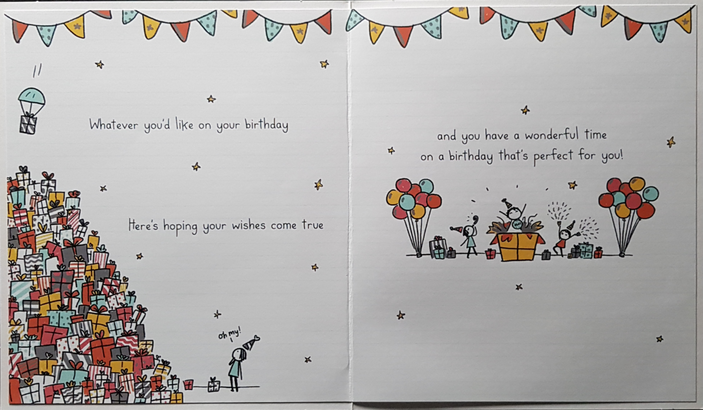 Whatever you'd like on your birthday
Here's hoping your wishes come true
oh my!
and you have a wonderful time
on a birthday that's perfect for you!